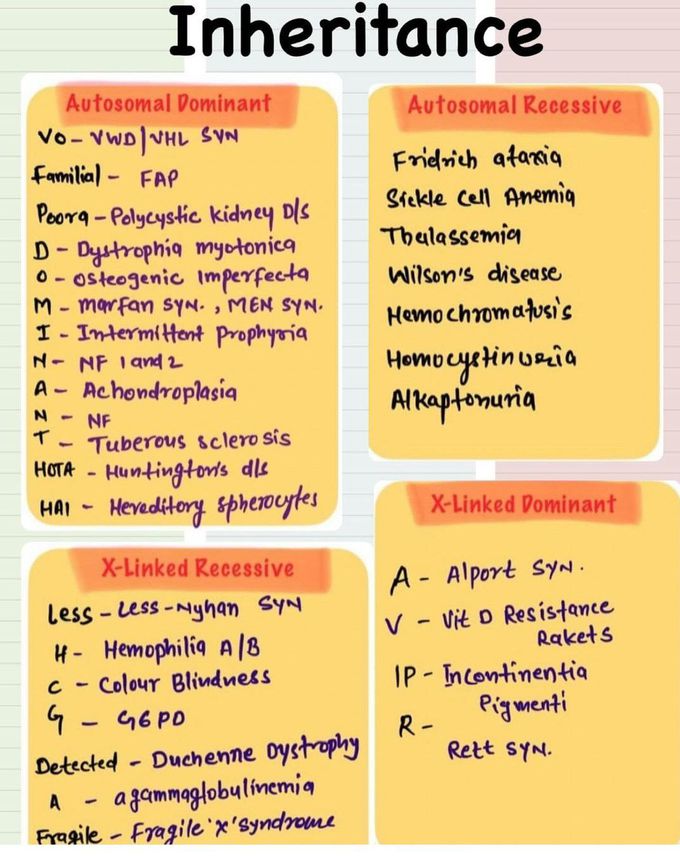 Inheritance
Autosomal Dominant
VO - VWD/VHL SYN
Familial - FAP
Poora - Polycystic kidney D/s
D - Dystrophia myotonica
O - osteogenic Imperfecta
M - marfan SYN. , MEN SYN.
I - Intermittent Prophyria
N - NF 1 and 2
A - Achondroplasia
N - NF
T - Tuberous sclerosis
HOTA - Huntington's d/s
HAI - Hereditory spherocytes
Autosomal Recessive
Fridrich ataxia
Sickle Cell Anemia
Thalassemia
Wilson's disease
Hemochromatusis
Homocystinuria
Alkaptonuria
X-Linked Recessive
Less - Less-Nyhan SYN
H - Hemophilia A/B
C - Colour Blindness
G - G6PD
Detected - Duchenne Dystrophy
A - agammaglobulinemia
Fragile - Fragile 'x' syndrome
X-Linked Dominant
A - Alport SYN.
V - Vit D Resistance
Rakets
IP - Incontinentia
Pigmenti
R -
Rett SYN.